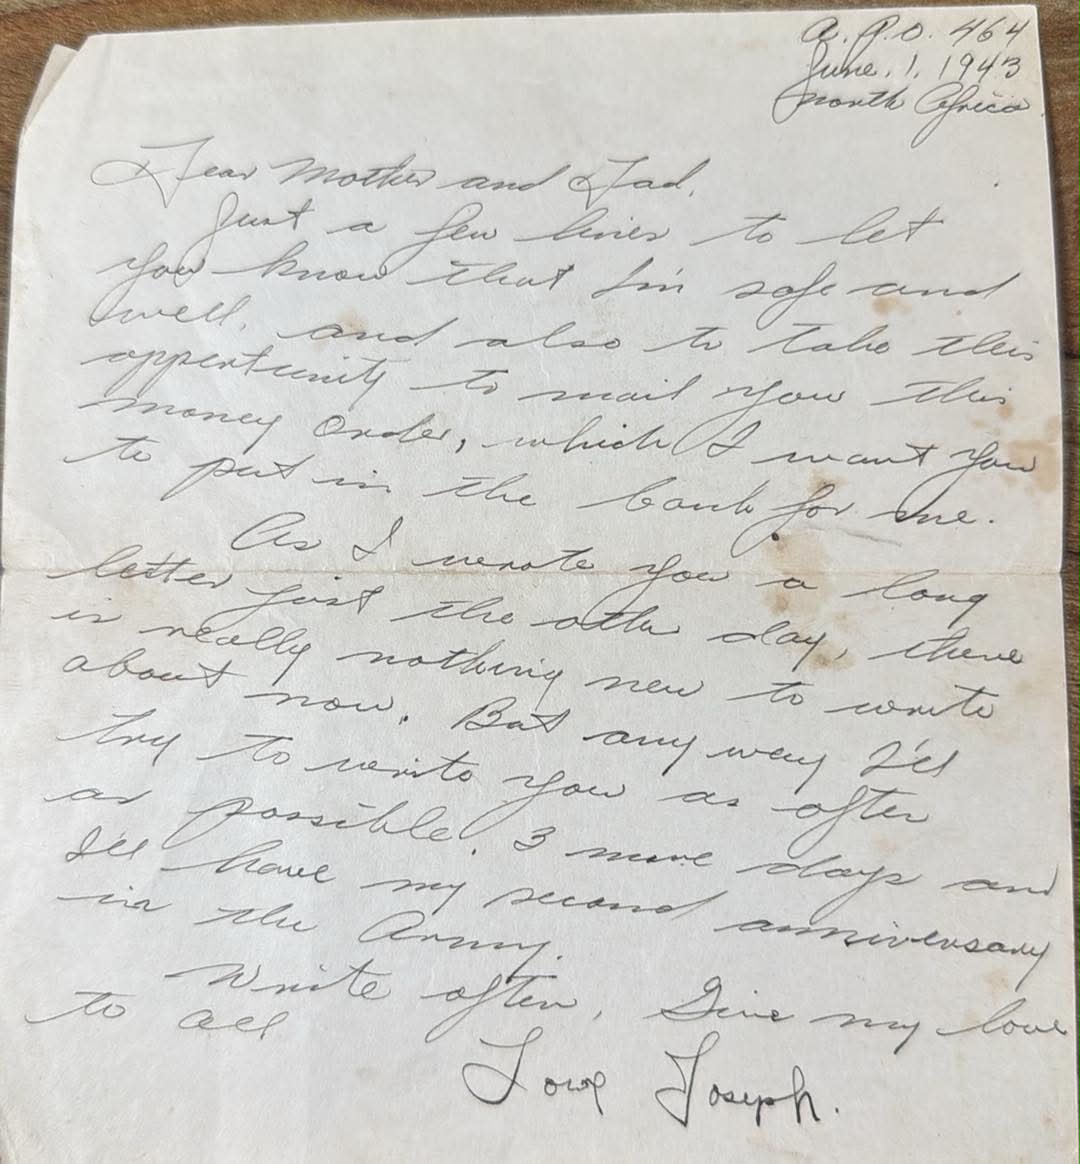 A.P.O. 464
June. 1, 1943
North Africa.
Dear Mother and Dad,
Just a few lines to let
you know that I'm safe and
well, and also to take this
oppertunity to mail you this
money order, which I want you
to put in the bank for me.
As I wrote you a long
letter just the other day, there
is really nothing new to write
about now. But any way I'll
try to write you as often
as possible. 3 more days and
I'll have my second anniversary
in the Army.
Write often, Give my love
to all
Love Joseph.